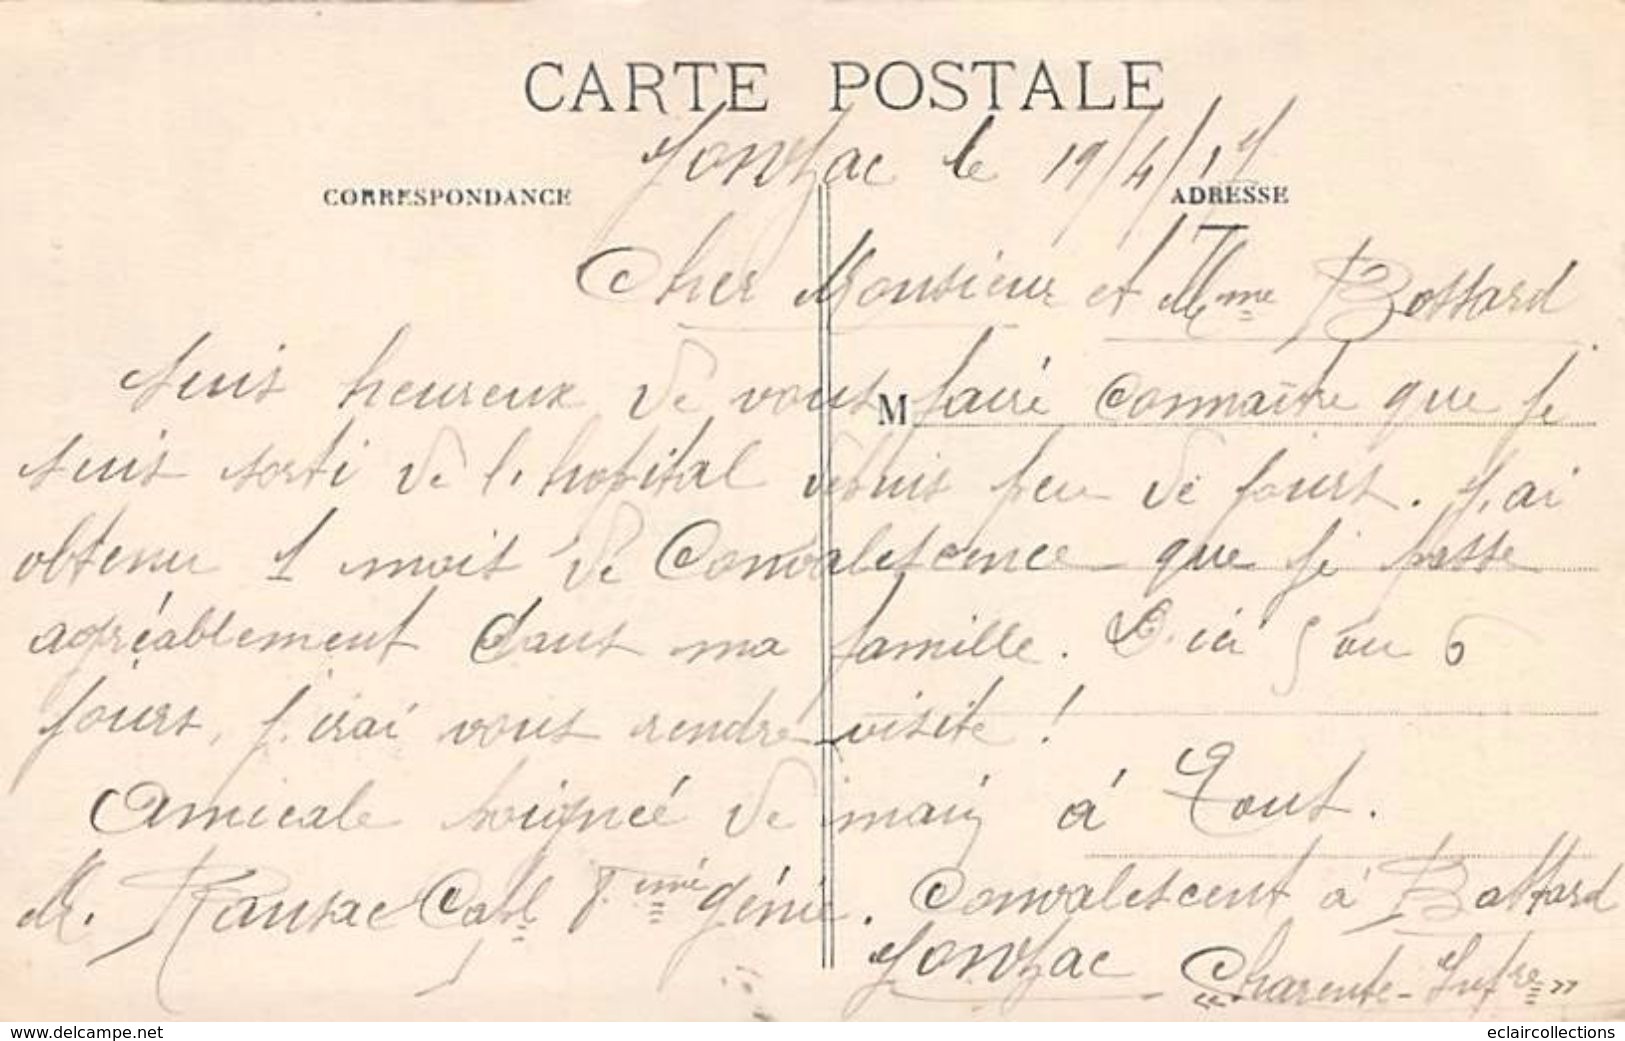 CARTE POSTALE
Jonzac le 19/4/17
CORRESPONDANCE
ADRESSE
Cher Monsieur et Mme Bottard
Suis heureux de vous faire connaitre que je
M
suis sorti de l'hopital depuis peu de jours. J'ai
obtenu 1 mois de Convalescence que je passe
agréablement dans ma famille. D'ici 5 ou 6
jours, j'irai vous rendre visite!
Amicale poignée de main à Tout.
M. Ransac Capl 8ème génie. Convalescent à Bottard
Jonzac Charente-Infre
eclaircollections.free.fr/Le monde en cartes postales
eclaircollections